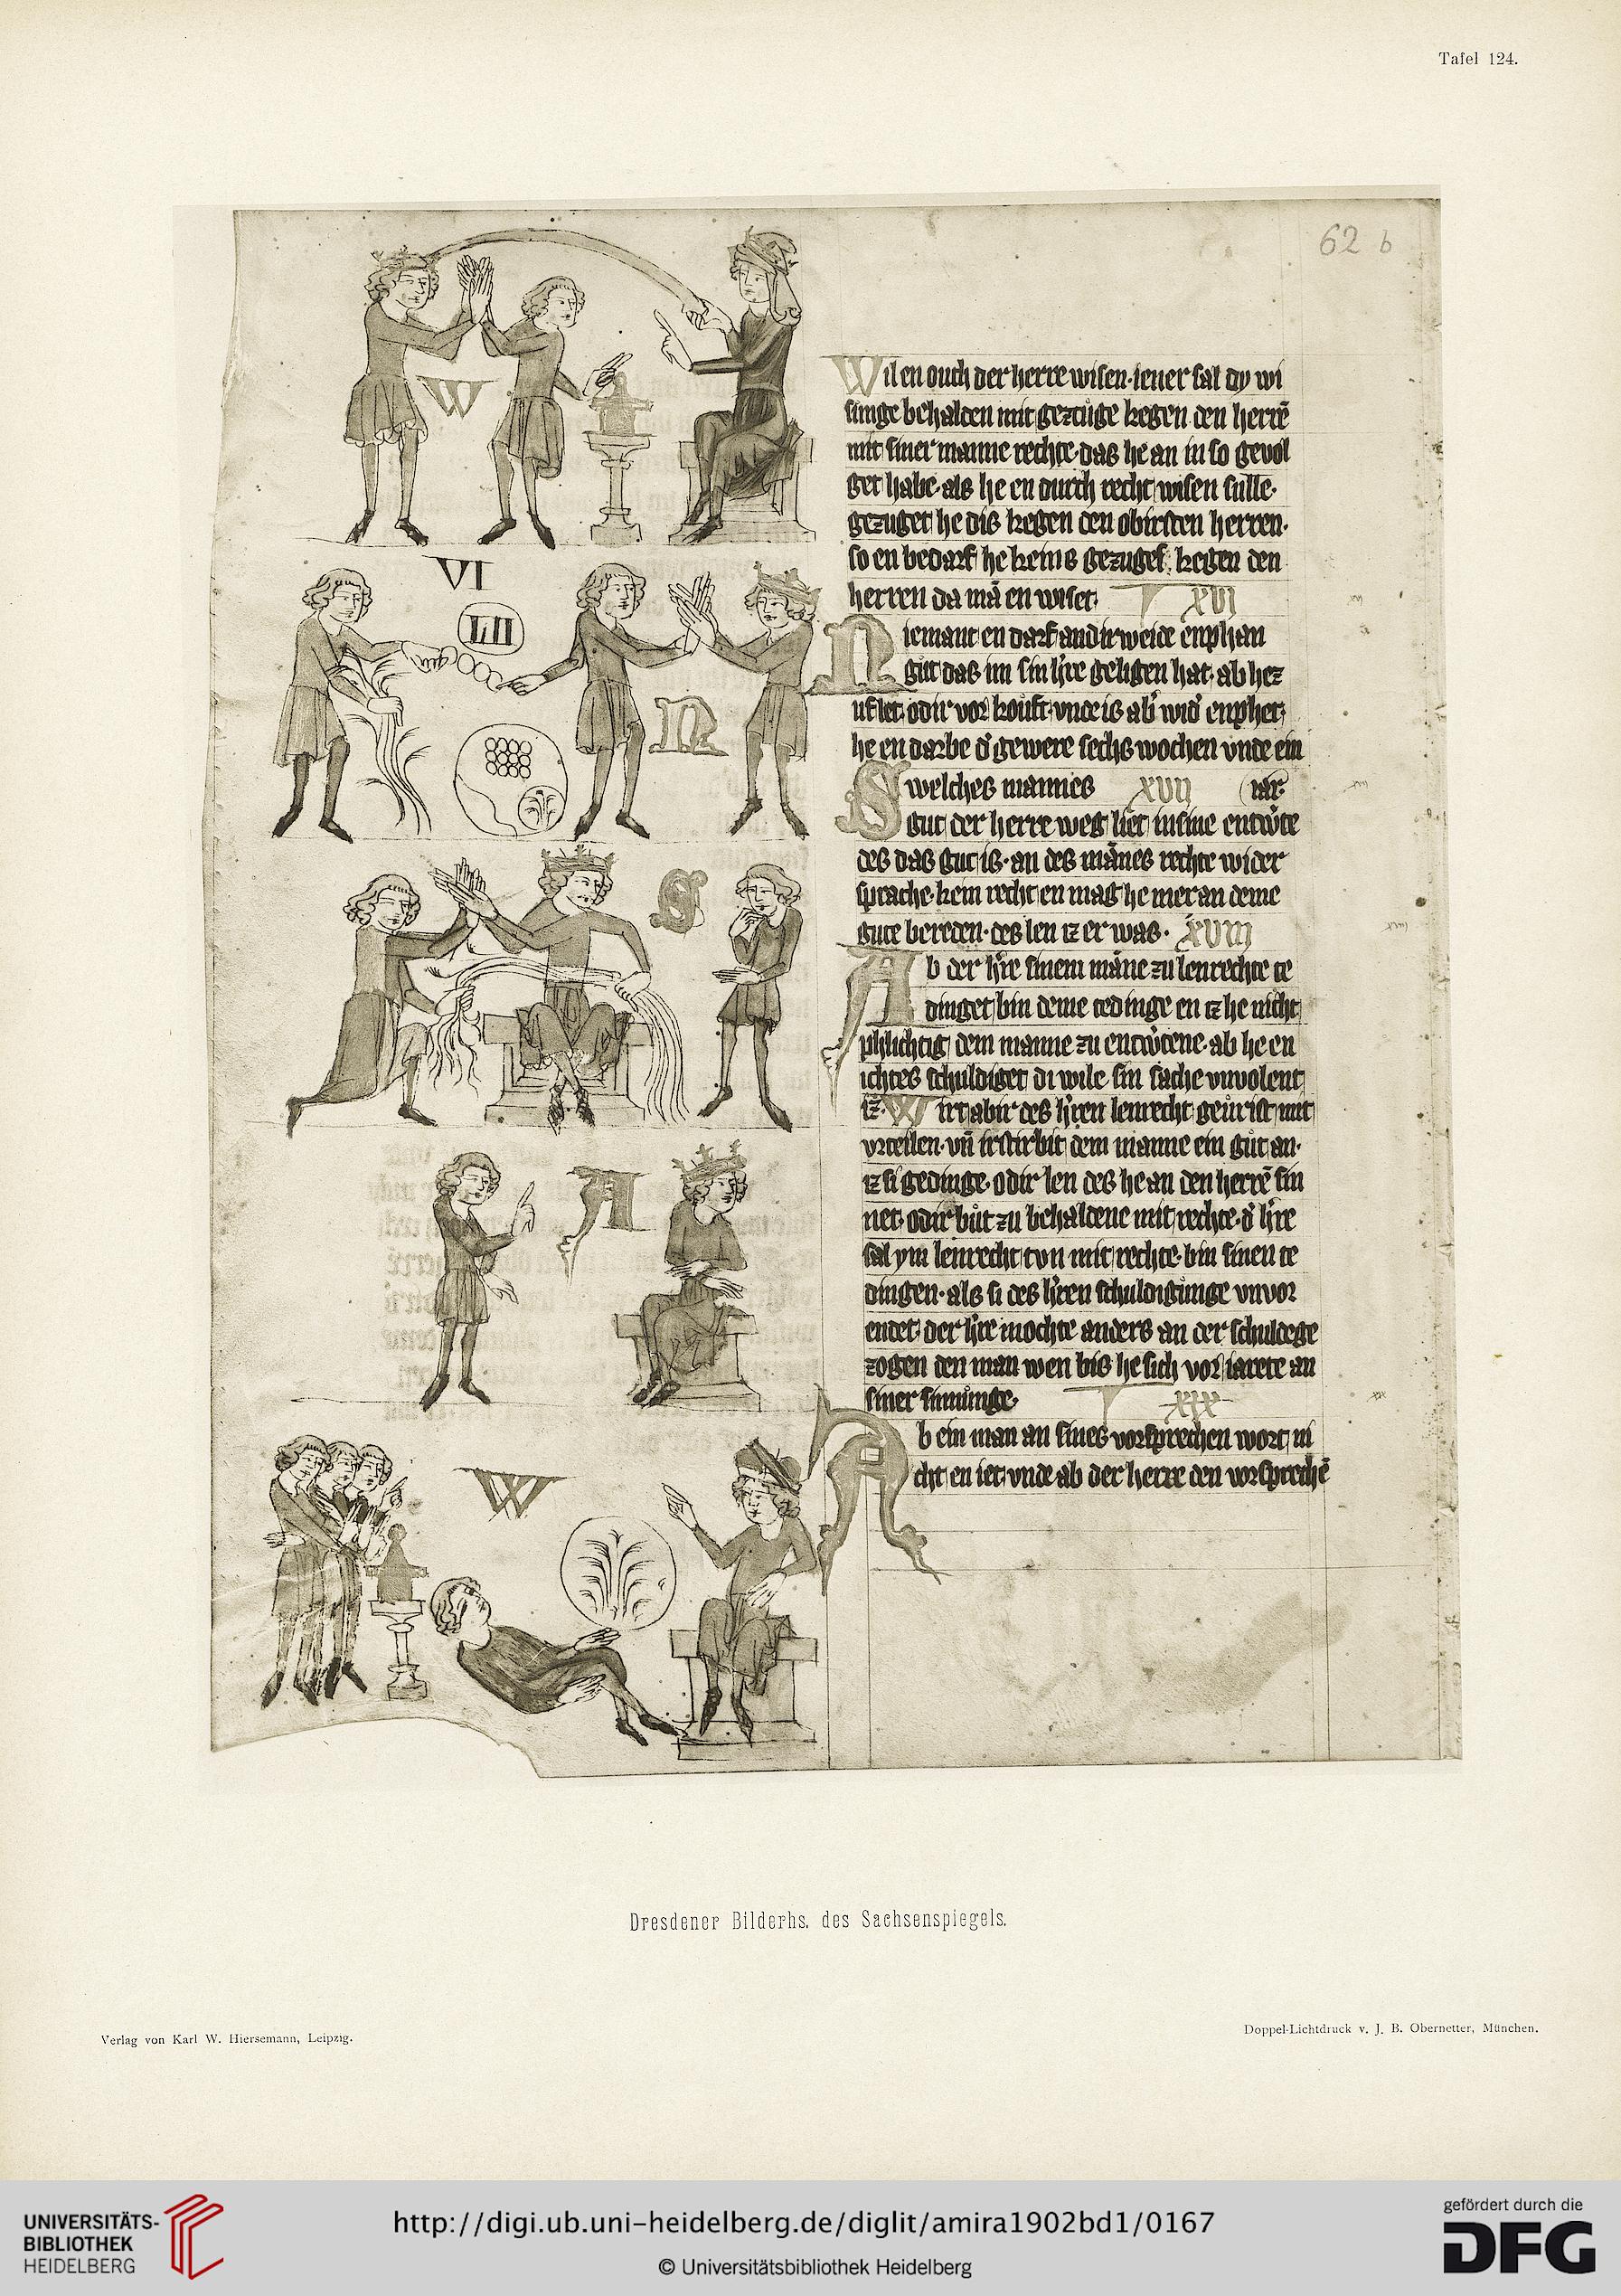 Tafel 124.
62 b
Wil en ouch der herre wisen· iener sal dy wi
sunge behalden mit gezcuͦge kegen den herrē
mit siner manne rechte· das he an in so gevol
get habe· als he en durch recht wisen sulle·
gezuget he dis kegen den obirsten herren·
so en bedarf he keins gezuges kegen den
herren da mā en wiset· XVI
Niemant en darf andirweide enphan
gut das im sin h're geligen hat· ab hez
uf let· odir vor kouft· vnde is ab' wid' enphet·
he en darbe d' gewere sechs wochen vnde ein
Swelches mannes XVII iar·
gut der herre weg liet in sine entw'te
des das gut is· an des mānes rechte wider
sprache· kein recht en mag he mer an deme
gute bereden· des len iz er was· XVIII
Ab der h're sinem māne zu lenrechte te
dinget bin deme tedinge en iz he nicht
phlichtig dem manne zu entw'tene· ab he en
ichtes schuldiget di wile sin sache vnvolent
iz· Wirt abir des h'ren lenrecht geuͦrist mit
vrteilen· vn̄ irstirbit dem manne ein guͦt an·
iz si gedinge· odir len des he an den herrē sin
net· odir buͦt zu behaldene mit rechte· d' h're
sal ym lenrecht tvn mit rechte· bin sinen te
dingen· als si des h'ren schuldigunge vnvor
endet· der h're mochte anders an der schuldege
zogen den man wen bis he sich vor iarete an
siner sinnunge· XIX
Ab ein man an sines vorsprechen wort ni
cht en iet· vnde ab der herre den vorsprechē
W
VI
LII
N
S
A
W
Dresdener Bilderhs. des Sachsenspiegels.
Verlag von Karl W. Hiersemann, Leipzig.
Doppel-Lichtdruck v. J. B. Obernetter, München.
UNIVERSITÄTS-
BIBLIOTHEK
HEIDELBERG
http://digi.ub.uni-heidelberg.de/diglit/amira1902bd1/0167
© Universitätsbibliothek Heidelberg
gefördert durch die
DFG